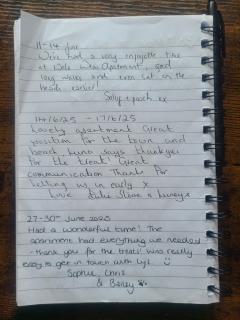 11-14 June
We've had a very enjoyable time
at Apartment, good
long walks and even sat on the
beach
ex
14/6/25 - 17/6/25
Lovely apartment Great
position for the town and
beach Luna says thankyou
for the treats! Great
communication Thanks for
letting us in early x
Love Luke &
27-30th June 2025
Had a wonderful time! The
apartment had everything we needed
- thank you for the treats! was really
easy to get in touch with Lyz
Sophie, Chris
& Barley